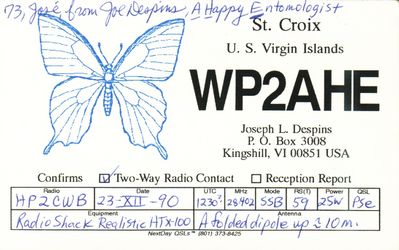 73, José from Joe Despins, A Happy Entomologist
St. Croix
U. S. Virgin Islands
WP2AHE
Joseph L. Despins
P. O. Box 3008
Kingshill, VI 00851 USA
Confirms ☑ Two-Way Radio Contact ☐ Reception Report
Radio Date UTC MHz Mode RS(T) Power QSL
HP2CWB 23-XII-90 1230z 28.402 SSB 59 25W Pse
Equipment Antenna
Radio Shack Realistic HTX-100 A folded dipole up ≈ 10m.
NextDay QSLs™ (801) 373-8425